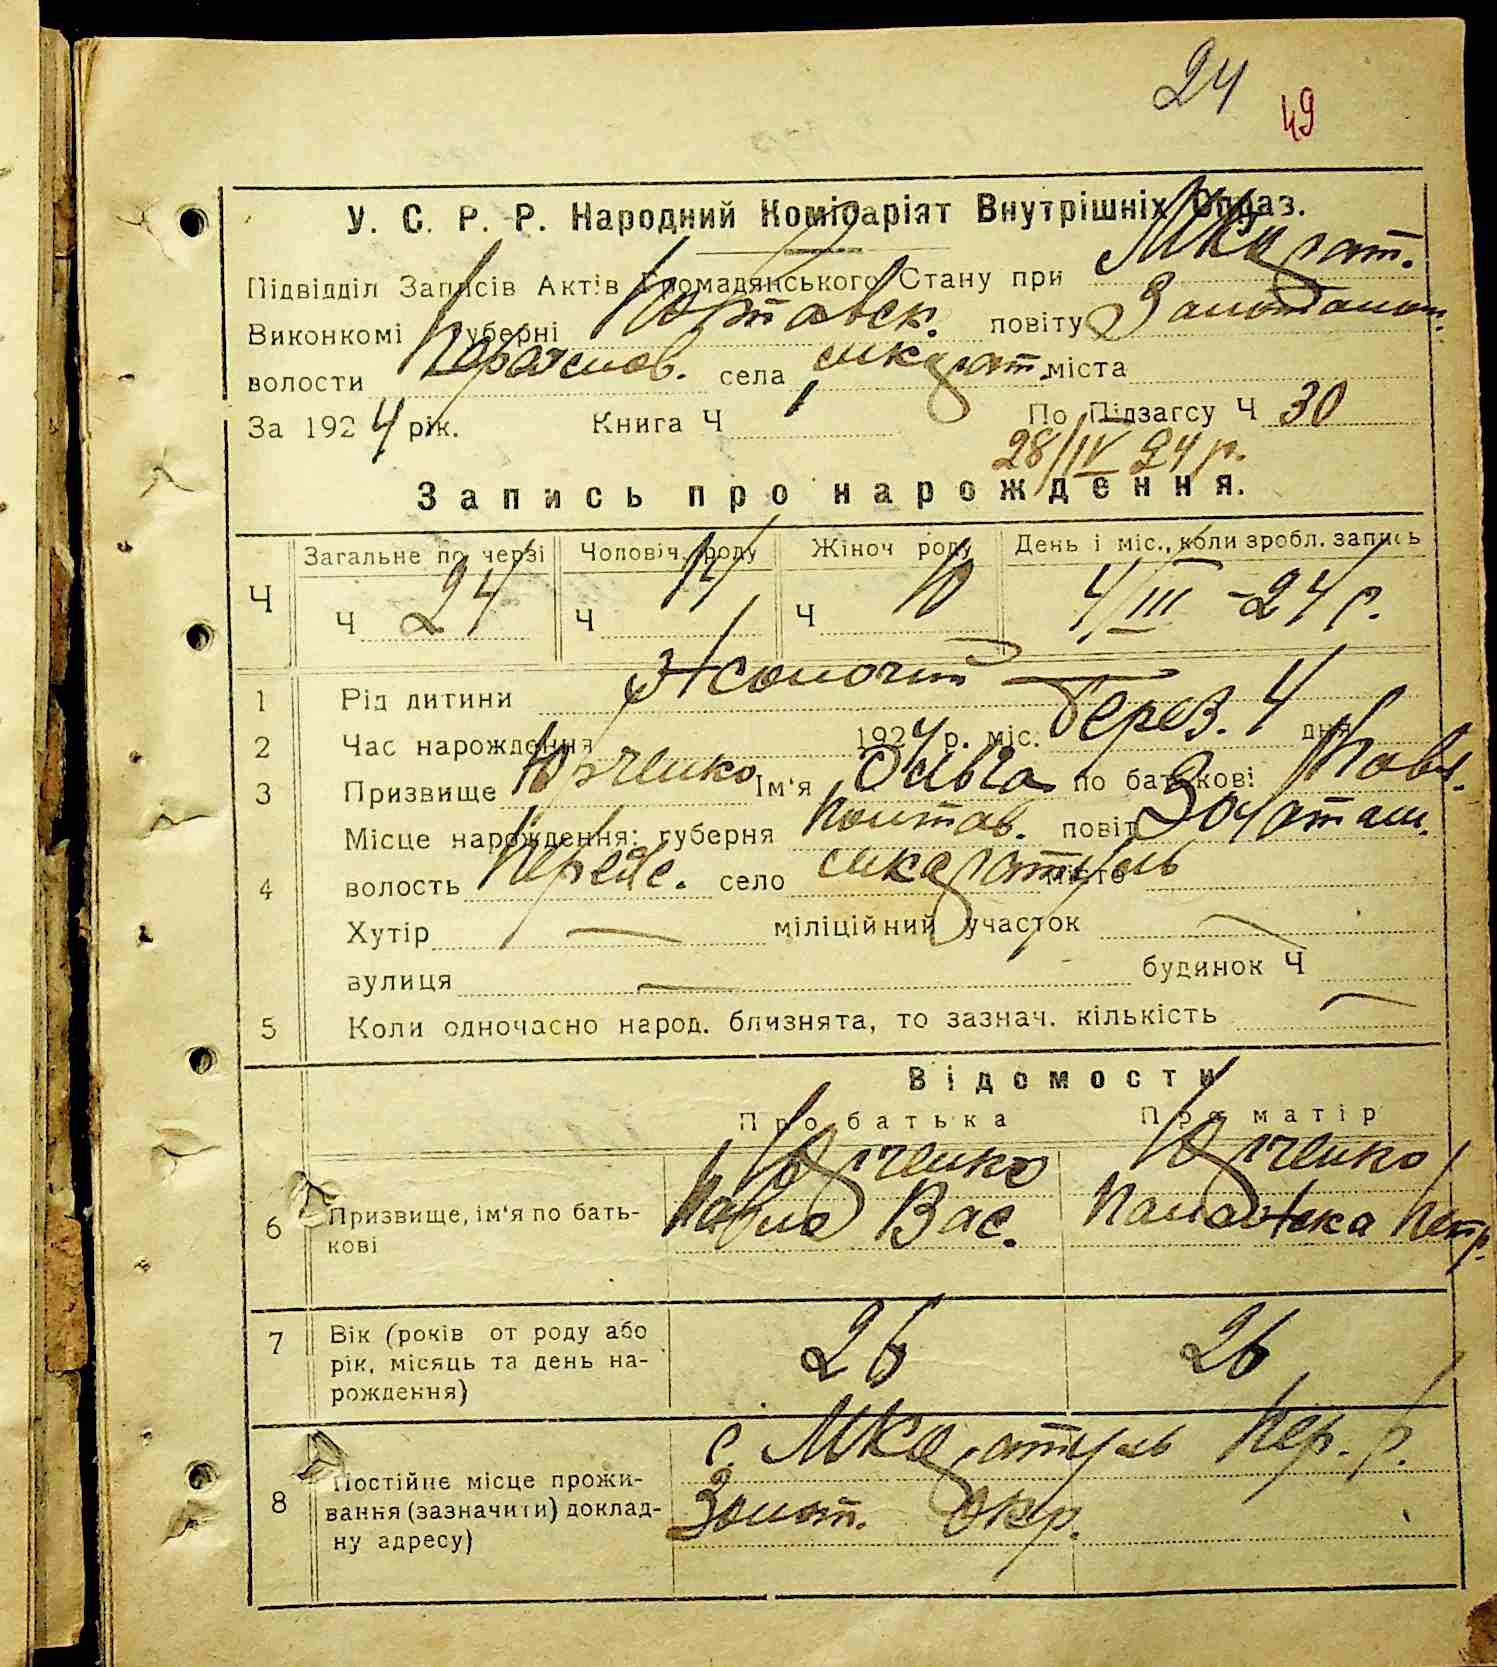 24
49
У. С. Р. Р. Народний Комісаріят Внутрішніх Справ.
Підвідділ Записів Актів Громадянського Стану при
Виконкомі губерні Полтавск. повіту Золотонош.
волости Переяслов. села міста
За 1924 рік. Книга Ч По Підзагсу Ч 30
28/IV 24 р.
Запись про нарождення.
Загальне по черзі Чоловіч. роду Жіноч роду День і міс., коли зробл. запись
Ч Ч 24 Ч 14 Ч 10 4/III -24 р.
1 Рід дитини Жіночий
2 Час нарождення 1924 р. міс. берез. 4 дня
3 Призвище Юрченко Ім'я Ольга по батькові Павл.
Місце нарождення: губерня Полтав. повіт Золотон.
4 волость Переяс. село місто
Хутір — міліційний участок —
вулиця — будинок Ч
5 Коли одночасно народ. близнята, то зазнач. кількість —
Відомости
Про батька Про матір
6 Призвище, ім'я по батькові
Юрченко Павло Вас.
Юрченко Петр.
7 Вік (років от роду або рік, місяць та день нарождення)
26 26
8 Постійне місце проживання (зазначити) докладну адресу)
с. Пер. р.
Золот. Окр.